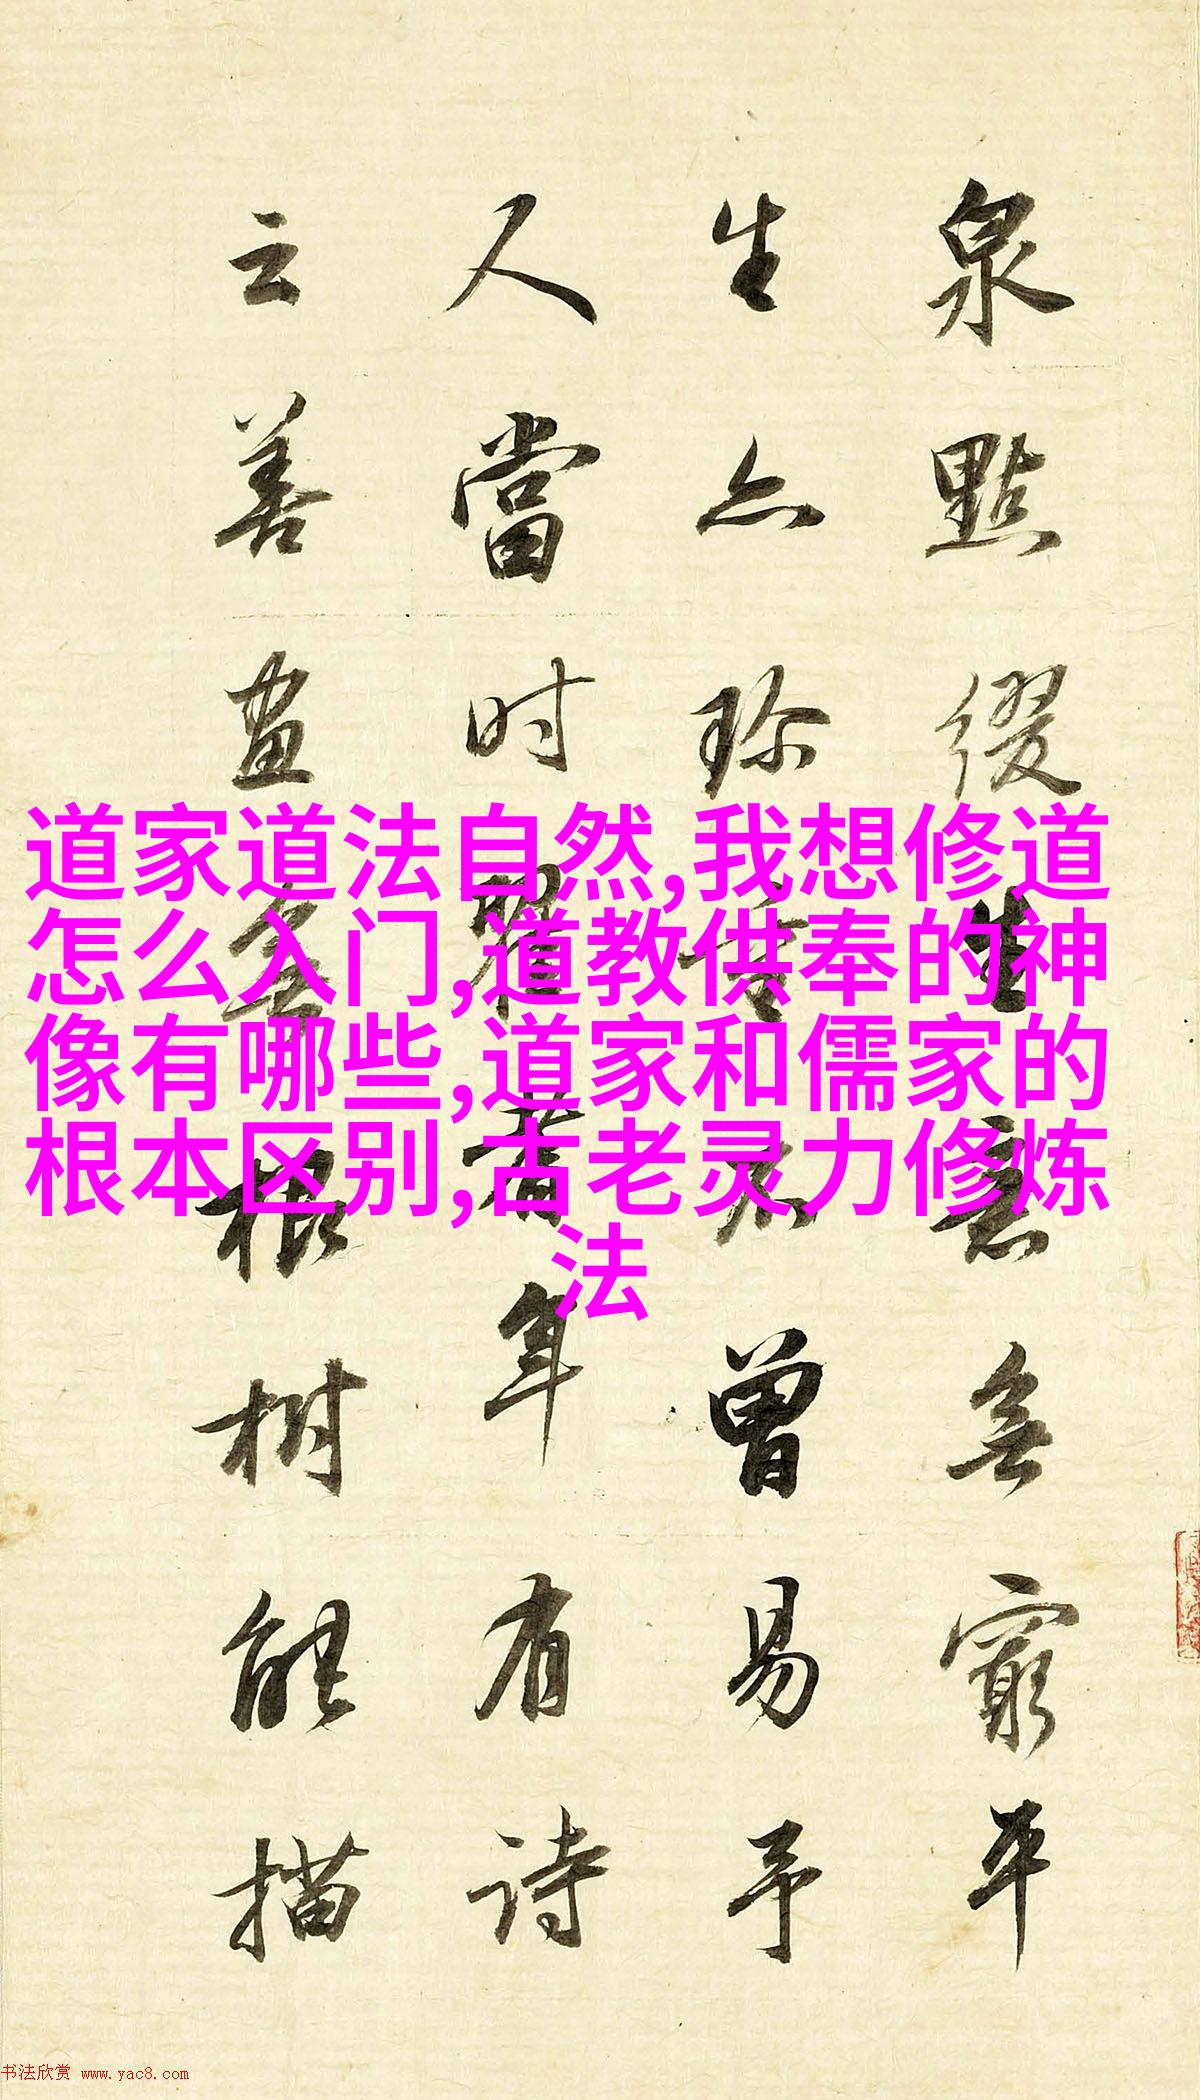 泉點綴生意無窮平
生亦珍重不曾易予
人當时翟耆年有诗
云善畫無根树能描
道家道法自然,我想修道
怎么入门,道教供奉的神
像有哪些,道家和儒家的
根本区别,古老灵力修炼
法
书法欣赏 www.yac8.com